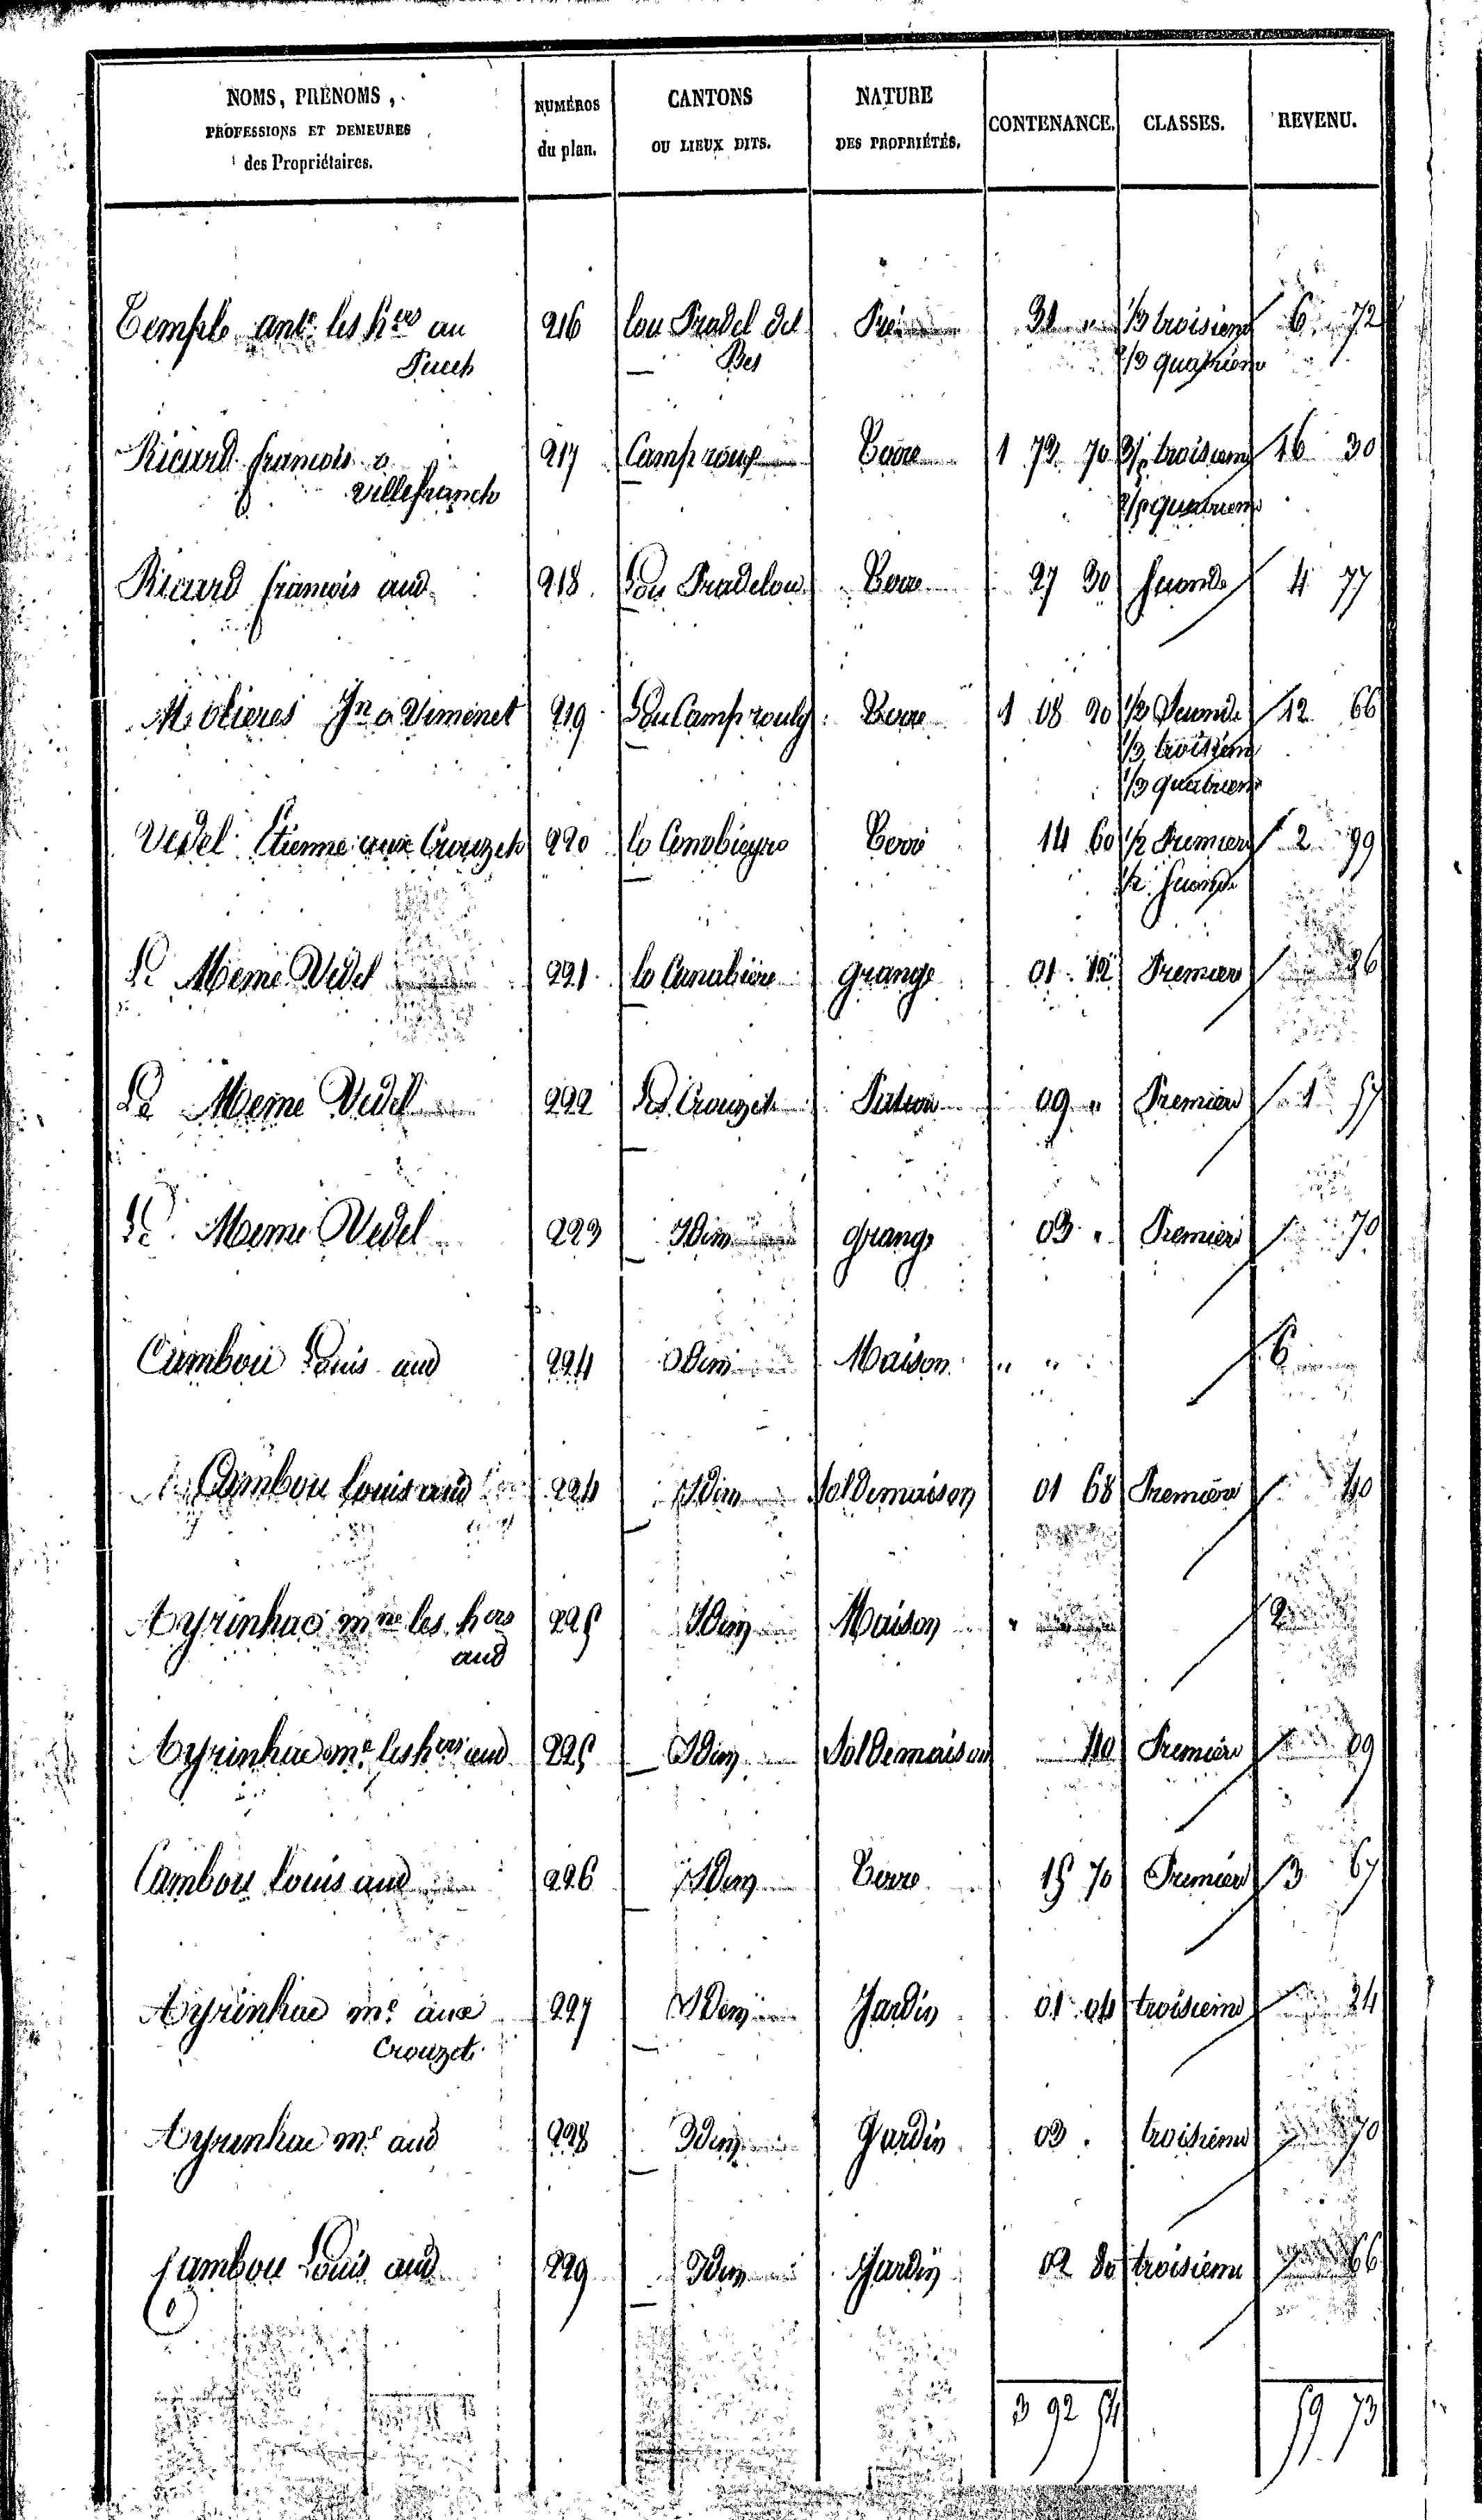 NOMS, PRÉNOMS, NUMÉROS CANTONS NATURE CONTENANCE. CLASSES. REVENU.
PROFESSIONS ET DEMEURES du plan. OU LIEUX DITS. DES PROPRIÉTÉS.
des Propriétaires.
Temple ant.e les h.ers au 216 lou Pradel del Pré 31 " 1/3 troisieme 6 72
Puech Bes 2/3 quatrieme
Ricard francois a 217 Camp rouge Terre 1 72 70 troisieme 16 30
villefranche quatrieme
Ricard francois aud 218 Lou Pradelou Terre 27 30 seconde 4 77
Molieres Jn a Vimenet 219 Lou Camp rouly Terre 1 08 20 1/3 seconde 12 66
1/3 troisieme
1/3 quatrieme
Vedel Etienne aux Crouzets 220 lo Conobieyro Terre 14 60 1/2 Premiere 2 99
1/2 seconde
Le Meme Vedel 221 lo Canabiere grange 01 12 Premiere 26
Le Meme Vedel 222 Les Crouzets Pature 09 " Premiere 1 57
Le Meme Vedel 223 Idem grange 03 " Premiere 70
Cambou Louis aud 224 Idem Maison " " 6
Cambou Louis aud 224 Idem Sol de maison 01 68 Premiere 40
Ayrinhac m.ne les hers 225 Idem Maison " 2
aud
Ayrinhac m.e les hers aud 225 Idem Sol de maison 40 Premiere 09
Cambou Louis aud 226 Idem Terre 15 70 Premiere 3 67
Ayrinhac m.e aux 227 Idem Jardin 01 04 troisieme 24
Crouzets
Ayrinhac m.e aud 228 Idem Jardin 03 " troisieme 70
Cambou Louis aud 229 Idem Jardin 02 80 troisieme 66
3 92 54 59 73